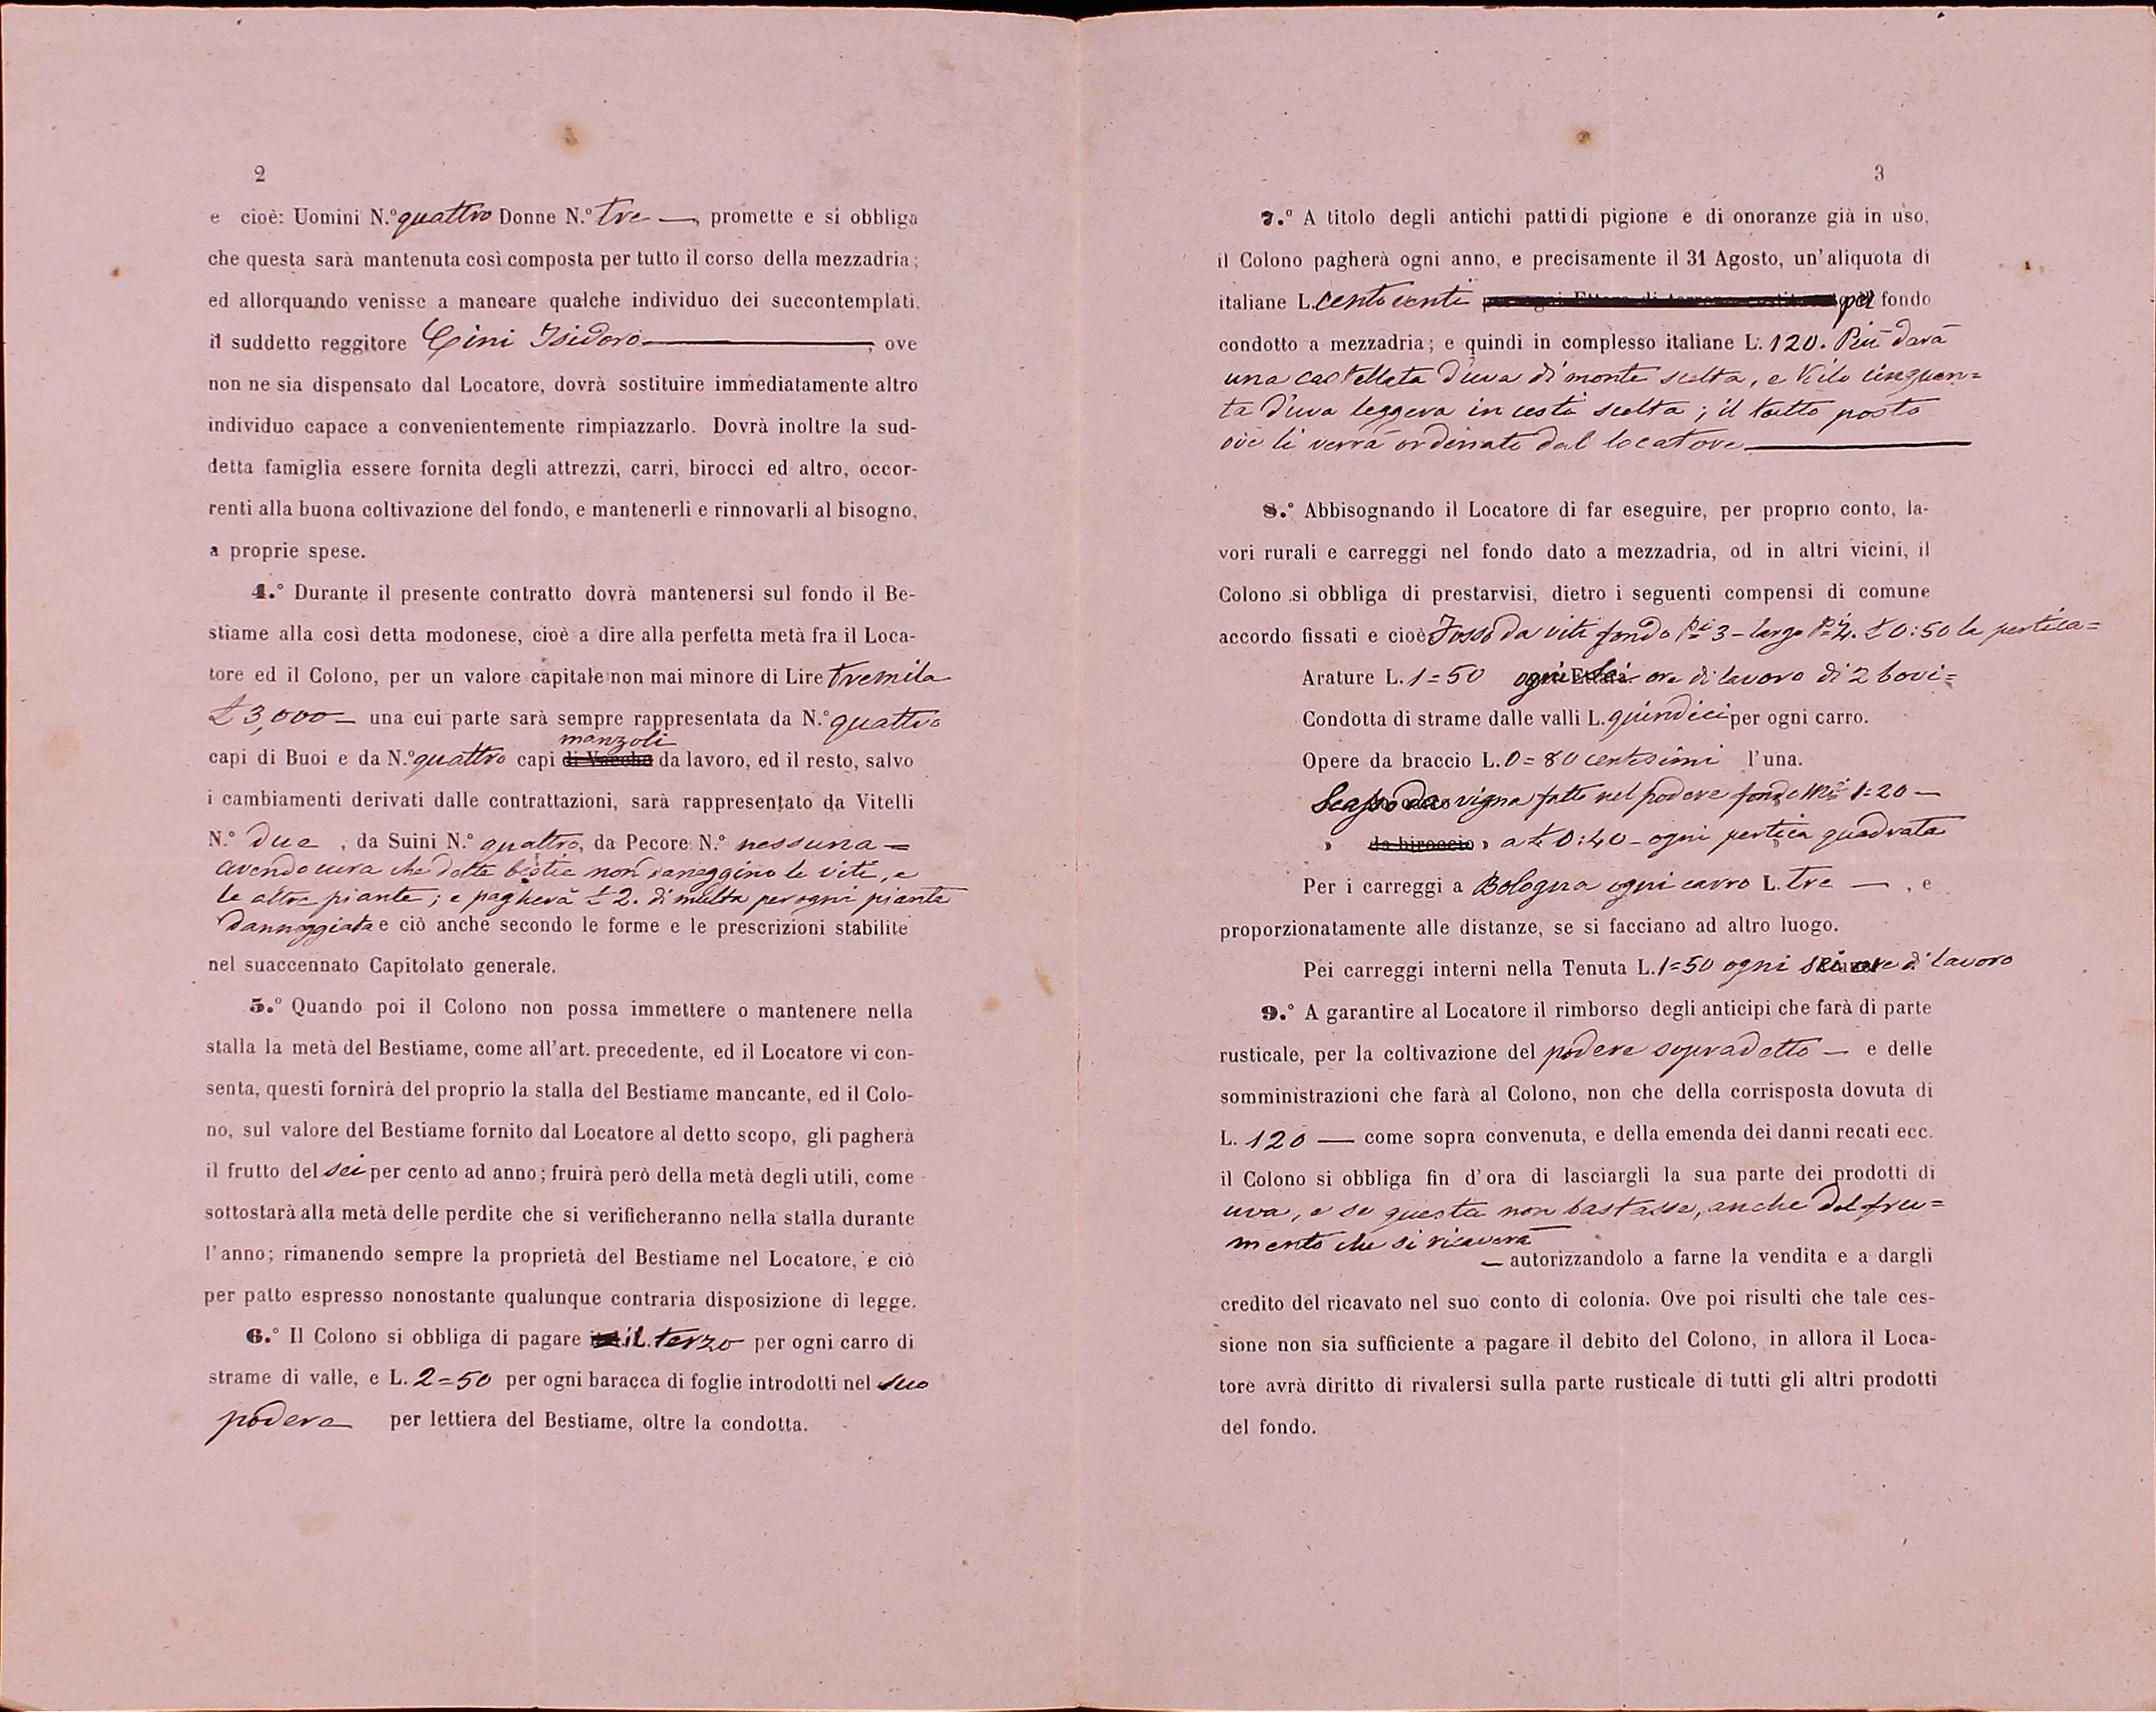 2
e cioè: Uomini N.° quattro Donne N.° tre —, promette e si obbliga
che questa sarà mantenuta così composta per tutto il corso della mezzadria;
ed allorquando venisse a mancare qualche individuo dei succontemplati,
il suddetto reggitore Cini Isidoro —, ove
non ne sia dispensato dal Locatore, dovrà sostituire immediatamente altro
individuo capace a convenientemente rimpiazzarlo. Dovrà inoltre la sud-
detta famiglia essere fornita degli attrezzi, carri, birocci ed altro, occor-
renti alla buona coltivazione del fondo, e mantenerli e rinnovarli al bisogno,
a proprie spese.
4.° Durante il presente contratto dovrà mantenersi sul fondo il Be-
stiame alla così detta modonese, cioè a dire alla perfetta metà fra il Loca-
tore ed il Colono, per un valore capitale non mai minore di Lire tremila
£ 3,000 — una cui parte sarà sempre rappresentata da N.° quattro
manzoli
capi di Buoi e da N.° quattro capi di Vacche da lavoro, ed il resto, salvo
i cambiamenti derivati dalle contrattazioni, sarà rappresentato da Vitelli
N.° due , da Suini N.° quattro, da Pecore N.° nessuna =
avendo cura che dette bestie non danneggino le viti, e
le altre piante; e pagherà £ 2. di multa per ogni pianta
dannoggiata e ciò anche secondo le forme e le prescrizioni stabilite
nel suaccennato Capitolato generale.
5.° Quando poi il Colono non possa immettere o mantenere nella
stalla la metà del Bestiame, come all'art. precedente, ed il Locatore vi con-
senta, questi fornirà del proprio la stalla del Bestiame mancante, ed il Colo-
no, sul valore del Bestiame fornito dal Locatore al detto scopo, gli pagherà
il frutto del sei per cento ad anno; fruirà però della metà degli utili, come
sottostarà alla metà delle perdite che si verificheranno nella stalla durante
l'anno; rimanendo sempre la proprietà del Bestiame nel Locatore, e ciò
per patto espresso nonostante qualunque contraria disposizione di legge.
6.° Il Colono si obbliga di pagare il terzo per ogni carro di
strame di valle, e L. 2=50 per ogni baracca di foglie introdotti nel suo
podere per lettiera del Bestiame, oltre la condotta.
3
7.° A titolo degli antichi patti di pigione e di onoranze già in uso,
il Colono pagherà ogni anno, e precisamente il 31 Agosto, un'aliquota di
italiane L. centoventi per ogni Ettara di terreno costituente pel fondo
condotto a mezzadria; e quindi in complesso italiane L. 120. Più darà
una castellata d'uva di monte scelta, e Kilo cinquan=
ta d'uva leggera in cesti scelta; il tutto posto
ove li verrà ordinato dal locatore —
8.° Abbisognando il Locatore di far eseguire, per proprio conto, la-
vori rurali e carreggi nel fondo dato a mezzadria, od in altri vicini, il
Colono si obbliga di prestarvisi, dietro i seguenti compensi di comune
accordo fissati e cioè Fosso da viti fondo Pi 3 - largo Pi 4. £ 0:50 la pertica=
Arature L. 1=50 ogni sei ore di lavoro di 2 bovi=
Condotta di strame dalle valli L. quindici per ogni carro.
Opere da braccio L. 0=80 centesimi l'una.
Scasso da vigna fatto nel podere fondo Mi 1=20 —
» da biroccio » a £ 0:40 - ogni pertica quadrata
Per i carreggi a Bologna ogni carro L. tre — , e
proporzionatamente alle distanze, se si facciano ad altro luogo.
Pei carreggi interni nella Tenuta L. 1=50 ogni sei ore di lavoro
9.° A garantire al Locatore il rimborso degli anticipi che farà di parte
rusticale, per la coltivazione del podere sopradetto — e delle
somministrazioni che farà al Colono, non che della corrisposta dovuta di
L. 120 — come sopra convenuta, e della emenda dei danni recati ecc.
il Colono si obbliga fin d'ora di lasciargli la sua parte dei prodotti di
uva, e se questa non bastasse, anche del fru=
mento che si ricaverà
— autorizzandolo a farne la vendita e a dargli
credito del ricavato nel suo conto di colonìa. Ove poi risulti che tale ces-
sione non sia sufficiente a pagare il debito del Colono, in allora il Loca-
tore avrà diritto di rivalersi sulla parte rusticale di tutti gli altri prodotti
del fondo.